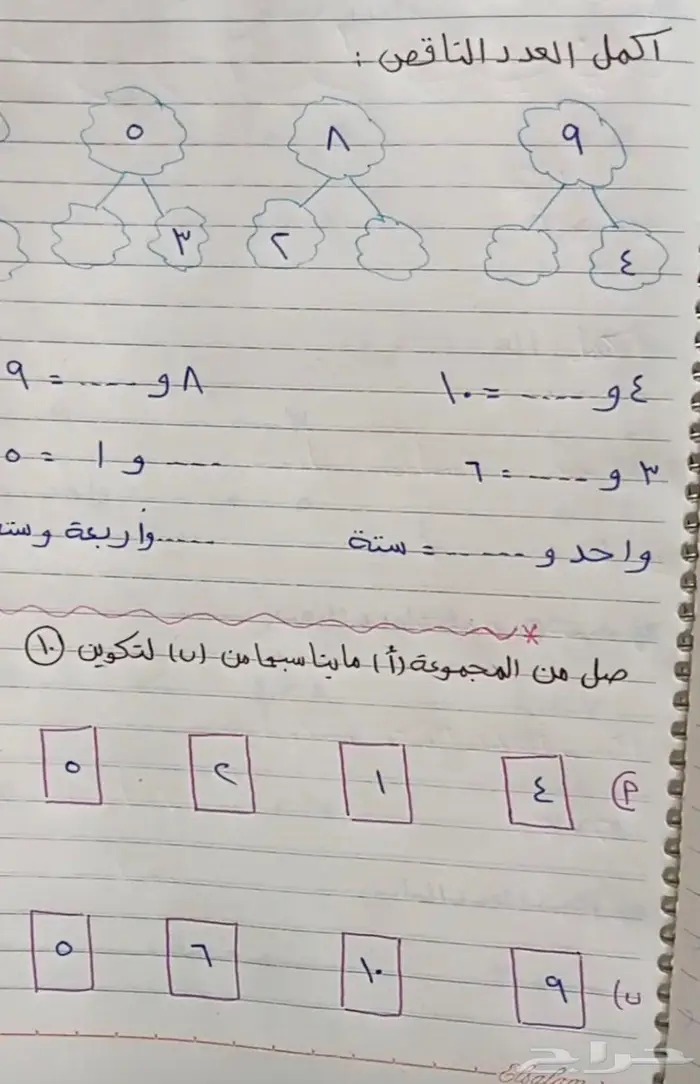 اكمل العدد الناقص :
٩ ٨ ٥
٤ ٢ ٣
٤ و ..... = ١٠ ٨ و ..... = ٩
٣ و ..... = ٦ ..... و ١ = ٥
واحد و ..... = ستة ..... وأربعة وست
صل من المجموعة (أ) ما يناسبها من (ب) لتكوين ١٠
أ) ٤ ١ ٢ ٥
ب) ٩ ١٠ ٦ ٥
Elsalam
حراج